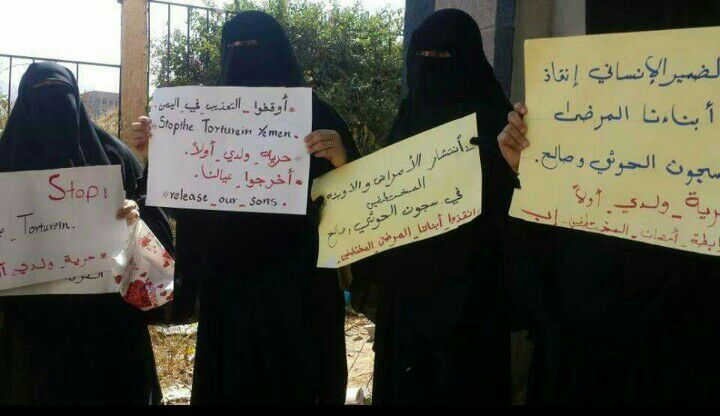 Stop!
Torturein.
حرية ولدي
* أوقفوا - التعذيب في اليمن .
Stopthe Torturein Yemen.
* حرية - ولدي - أولاً.
* أخرجوا - عيالنا.
#release_our_sons.
أنتشار الأمراض والأوبئة
المختطفين
في سجون الحوثي وصالح
انقذوا أبنائنا المرضى المختطفين.
لضمير الإنساني إنقاذ
أبناءنا المرضى
سجون الحوثي وصالح.
حرية - ولدي - أولاً
أمهات - المختطفين - إب